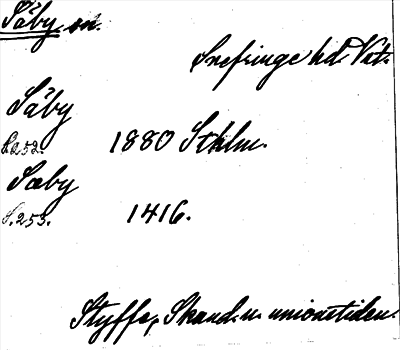 Säby sn.
Snefringe hd. Vst.
Säby
S.252. 1880 Sthlm.
Sæby
S.253. 1416.
Styffe, Skand. u. unionstiden.